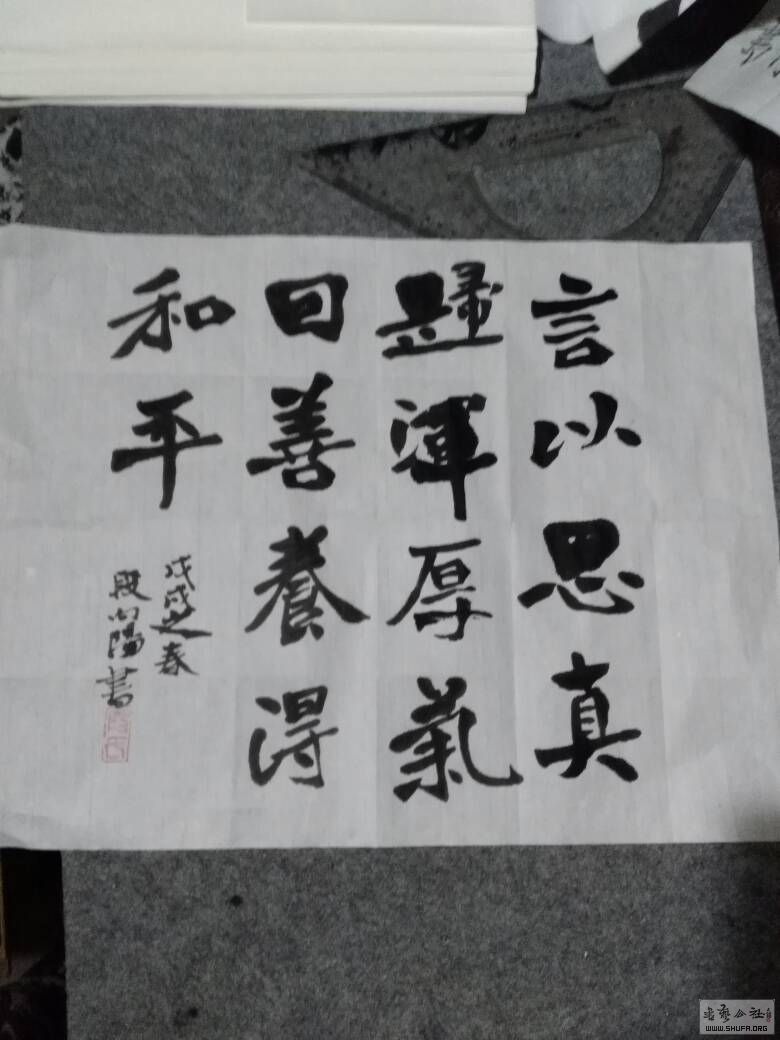 言以思真
歸渾厚氣
囙善養得
和平
戊戌之春
段向陽書
書藝公社
WWW.SHUFA.ORG